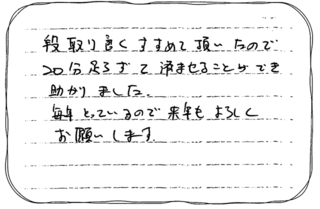 段取り良くすすめて頂いたので
20分足らずで済ませることができ
助かりました.
毎年とっているので来年もよろしく
お願いします.